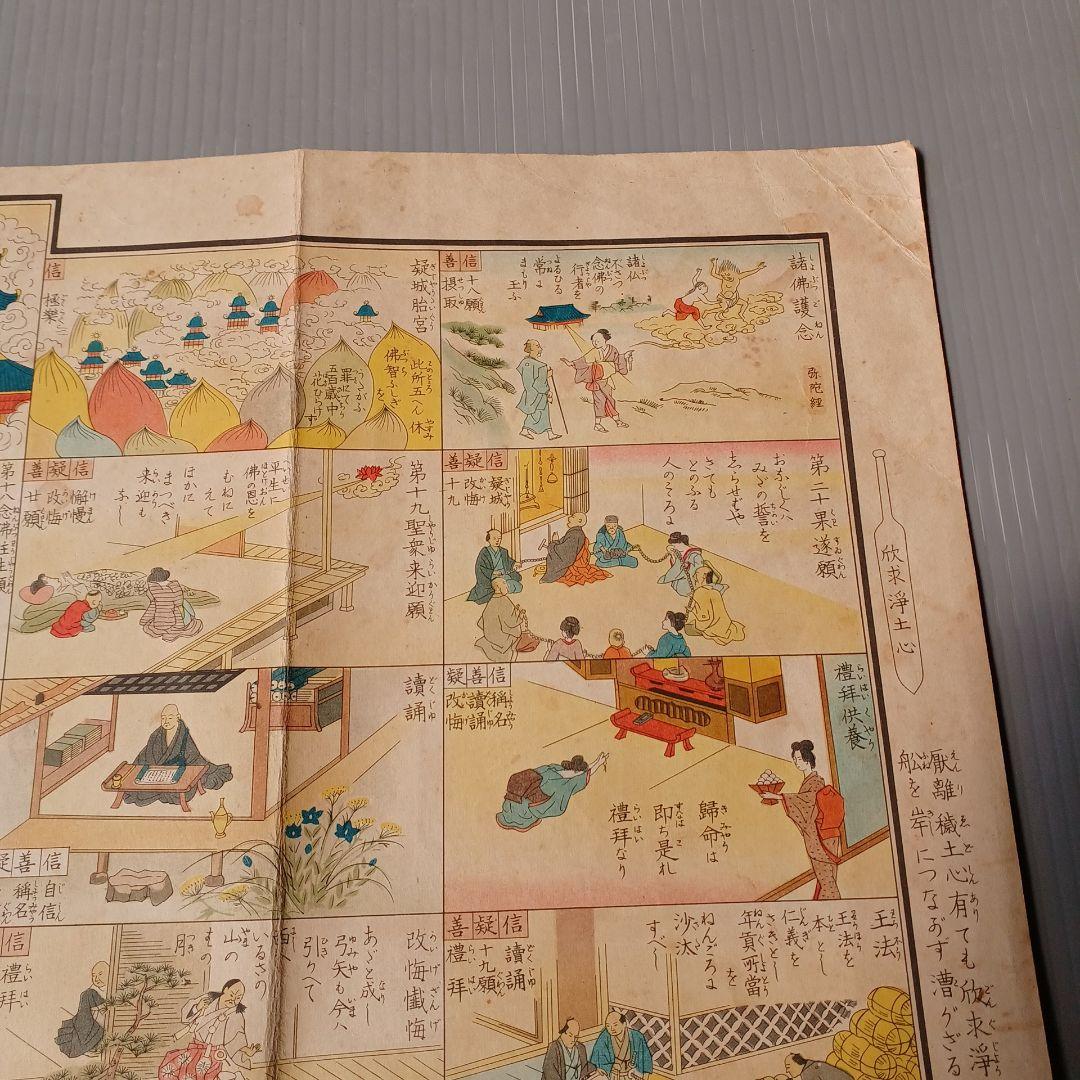 諸佛護念
弥陀經
諸仏
不さつ
念佛の
行者を
よるひる
常に
まもり玉ふ
善信
十八願
摂取
疑城胎宮
此所五へん休
佛智ふしぎを
うたがふ
罪にてらく
五百歳中
花ひらけず
信
極樂
第二十果遂願
おふじくハ
みだの誓を
志らせずや
さても
となふる
人のこゝろよ
善疑信
疑城
改悔
十九
第十九聖衆来迎願
平生に
佛の恩を
むねに
えて
ほかに
まつべき
来迎も
なし
善疑信
懈慢
改悔
廿願
第十八念佛往生願
禮拜供養
歸命は
即ち是れ
禮拜なり
疑善信
稱名
讀誦
改悔
讀誦
疑善信
自信
稱名
王法
王法を
本とし
仁義を
さきとし
年貢所當を
ねんごろに
沙汰
すべし
善疑信
讀誦
十九願
禮拜
改悔懴悔
あだと成し
弓矢も今ハ
引かへて
いるさの
山の
もの
月
信
禮拜
欣求淨土心
厭離穢土心有ても欣求淨
船を岸につなおず漕がざる